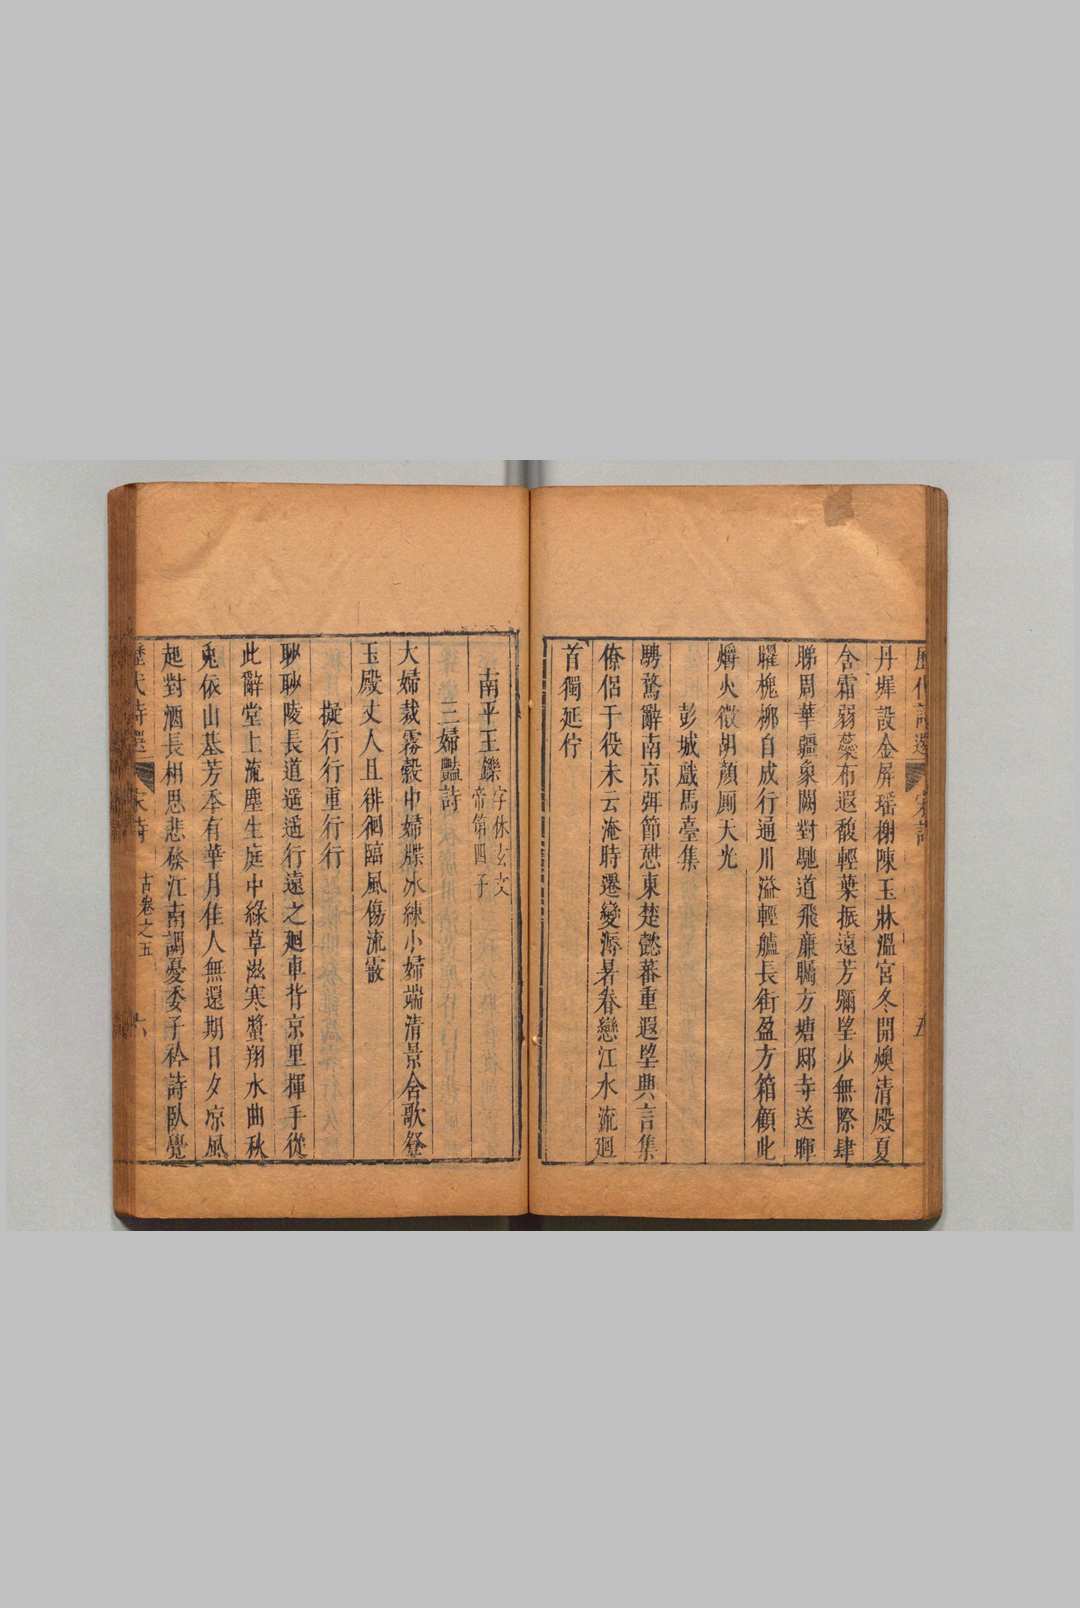 歷代詩選 宋詩 五
丹墀設金屏瑶榭陳玉牀溫宮冬開燠清殿夏
含霜弱蘂布遐馥輕葉振遠芳彌望少無際肆
睇周華疆象闕對馳道飛廉矚方塘邸寺送暉
曜槐栁自成行通川溢輕艫長街盈方箱顧此
爝火微胡顏厠天光
彭城戲馬臺集
騁騖辭南京弭節憩東楚懿蕃重遐望興言集
僚侶于役未云淹時遷變溽暑眷戀江水流廻
首獨延佇
南平王鑠字休玄文帝第四子
三婦豔詩
大婦裁霧縠中婦牒冰練小婦端清景含歌登
玉殿丈人且徘徊臨風傷流霰
擬行行重行行
眇眇陵長道遥遥行遠之廻車背京里揮手從
此辭堂上流塵生庭中綠草滋寒螿翔水曲秋
兔依山基芳年有華月佳人無還期日夕凉風
起對酒長相思悲發江南調憂委子衿詩臥覺
歷代詩選 宋詩 古卷之五 六